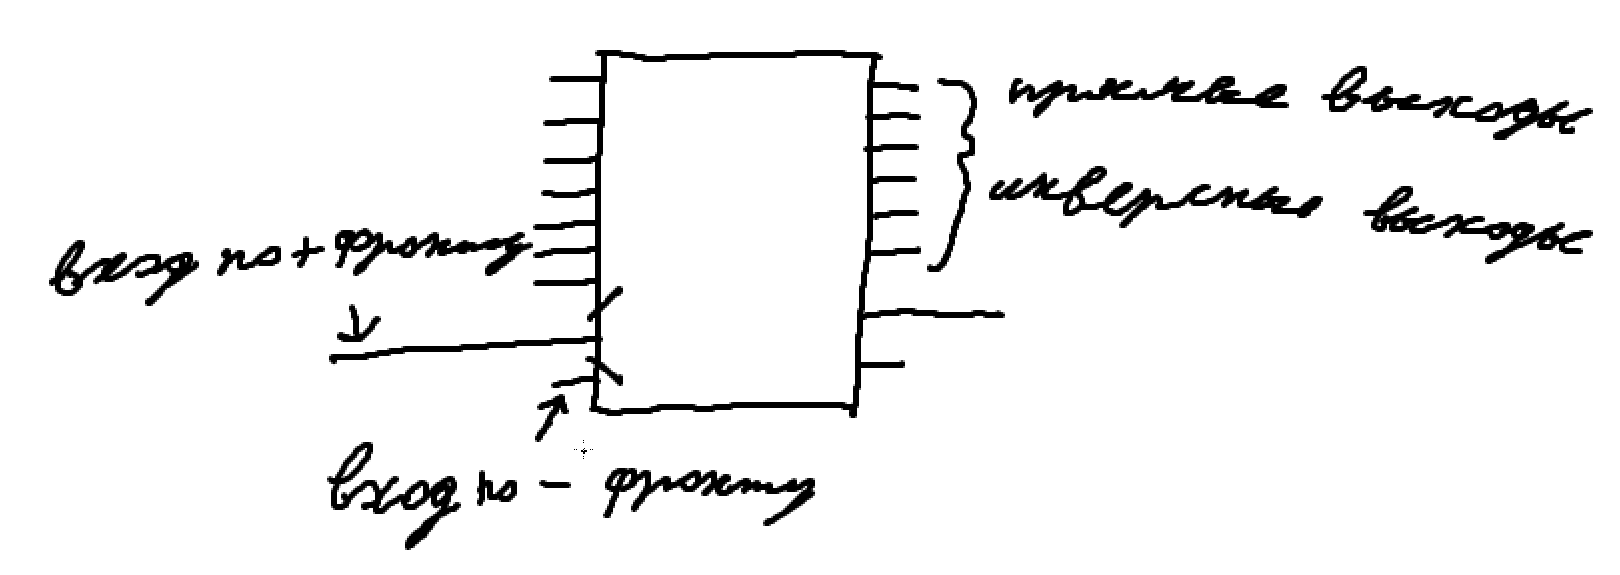 прямые выходы
инверсные выходы
вход по + фронту
вход по - фронту